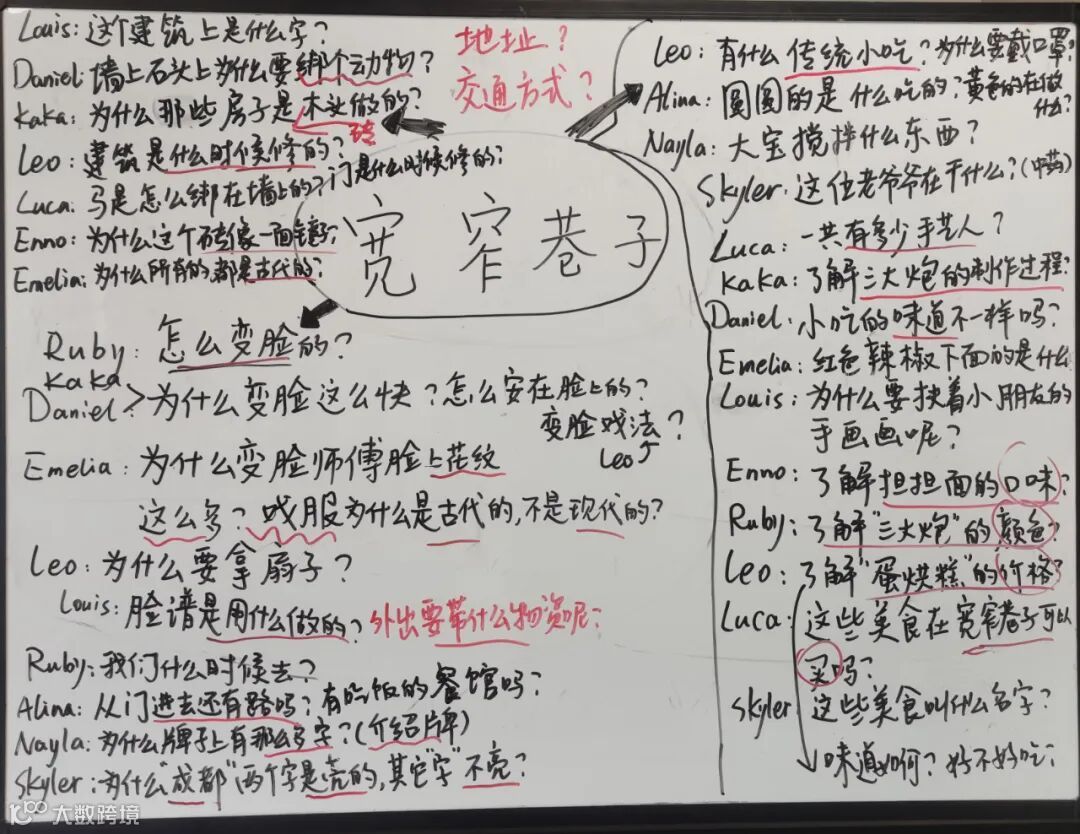 Louis: 这个建筑上是什么字?
Daniel: 墙上石头上为什么要绑个动物?
Kaka: 为什么那些房子是木头做的?
砖
Leo: 建筑是什么时候修的? 门是什么时候修的?
Luca: 马是怎么绑在墙上的?
Enno: 为什么这个砖像一面镜子?
Emelia: 为什么所有的都是古代的?
地址?
交通方式?
宽窄巷子
Ruby: 怎么变脸的?
Kaka
Daniel > 为什么变脸这么快? 怎么安在脸上的?
变脸戏法?
Leo
Emelia: 为什么变脸师傅脸上花纹
这么多? 戏服为什么是古代的,不是现代的?
Leo: 为什么要拿扇子?
Louis: 脸谱是用什么做的?
外出要带什么物资呢?
Ruby: 我们什么时候去?
Alina: 从门进去还有路吗? 有吃饭的餐馆吗?
Nayla: 为什么牌子上有那么多字?(介绍牌)
Skyler: 为什么“成都”两个字是亮的,其它“字”不亮?
Leo: 有什么传统小吃? 为什么要戴口罩?
Alina: 圆圆的是什么吃的? 黄色的在做
什么?
Nayla: 大宝搅拌什么东西?
Skyler: 这位老爷爷在干什么?(中药)
Luca: 一共有多少手艺人?
Kaka: 了解三大炮的制作过程?
Daniel: 小吃的味道不一样吗?
Emelia: 红色辣椒下面的是什么
Louis: 为什么要扶着小朋友的
手画画呢?
Enno: 了解担担面的口味?
Ruby: 了解“三大炮”的颜色?
Leo: 了解“蛋烘糕”的价格?
Luca: 这些美食在宽窄巷子可以
买吗?
Skyler: 这些美食叫什么名字?
味道如何? 好不好吃?
大数跨境